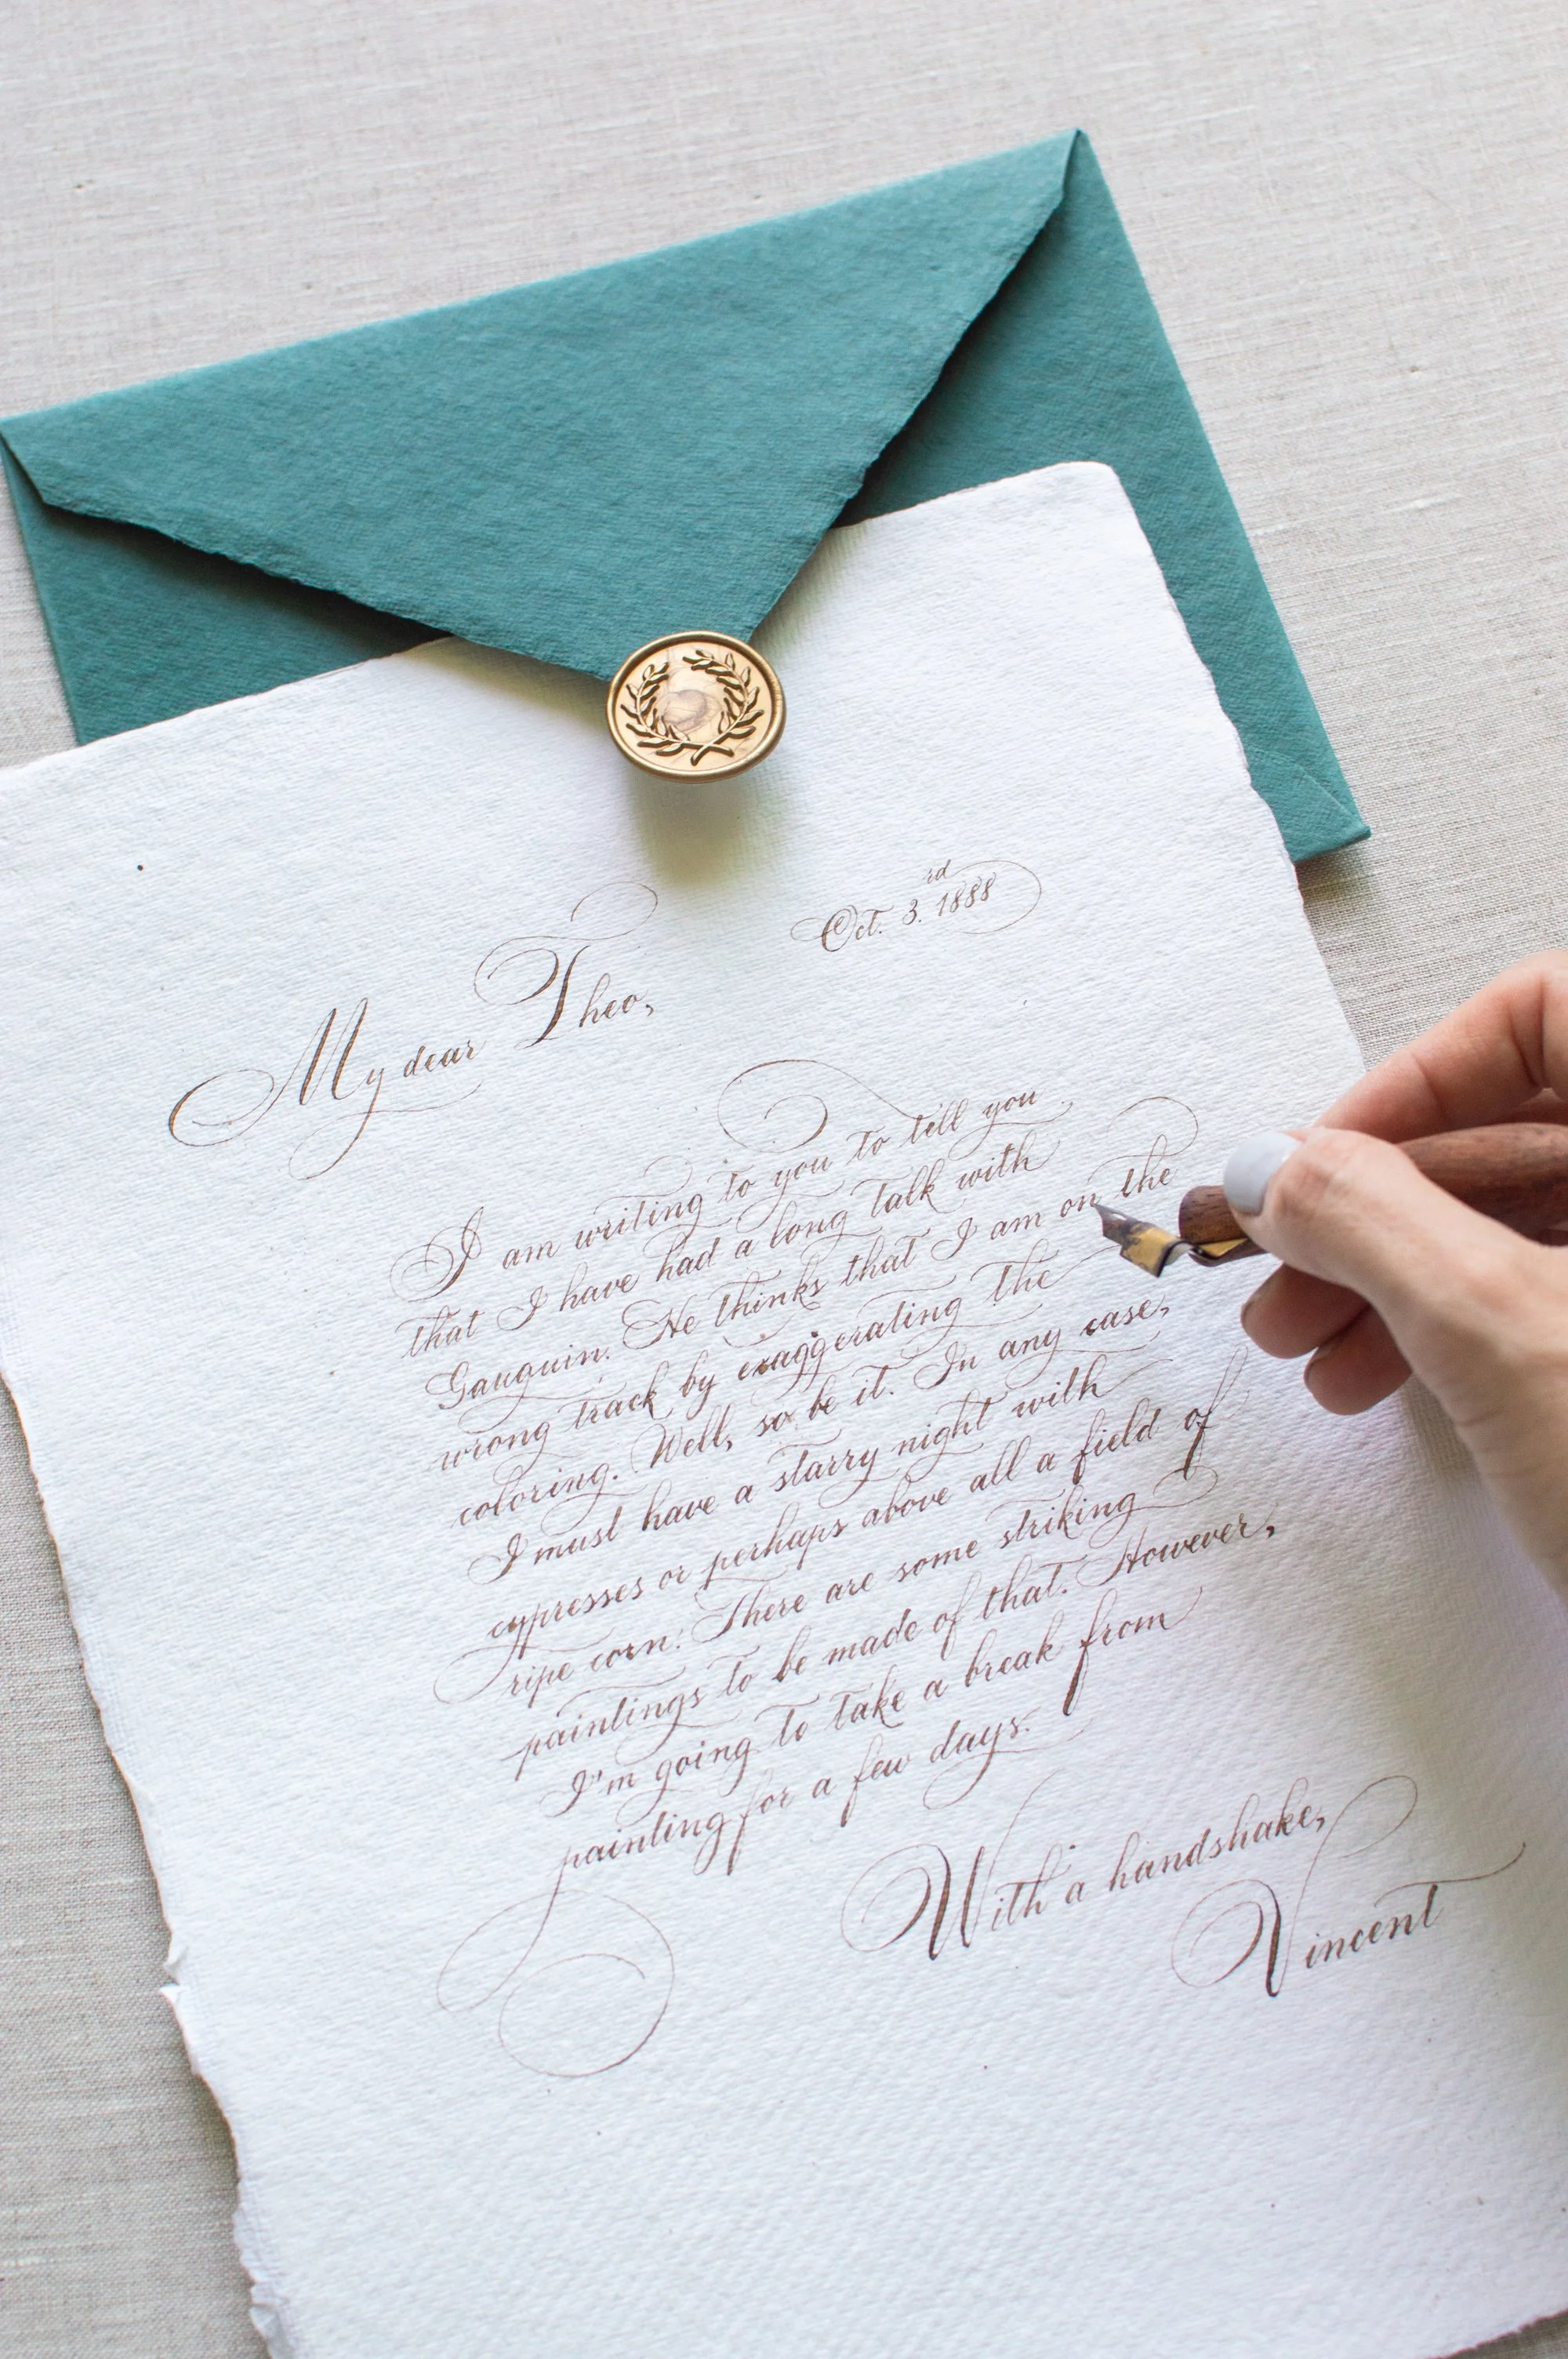 Oct. 3.rd 1888
My dear Theo,
I am writing to you to tell you
that I have had a long talk with
Gauguin. He thinks that I am on the
wrong track by exaggerating the
coloring. Well, so be it. In any case,
I must have a starry night with
cypresses or perhaps above all a field of
ripe corn. There are some striking
paintings to be made of that. However,
I'm going to take a break from
painting for a few days.
With a handshake,
Vincent